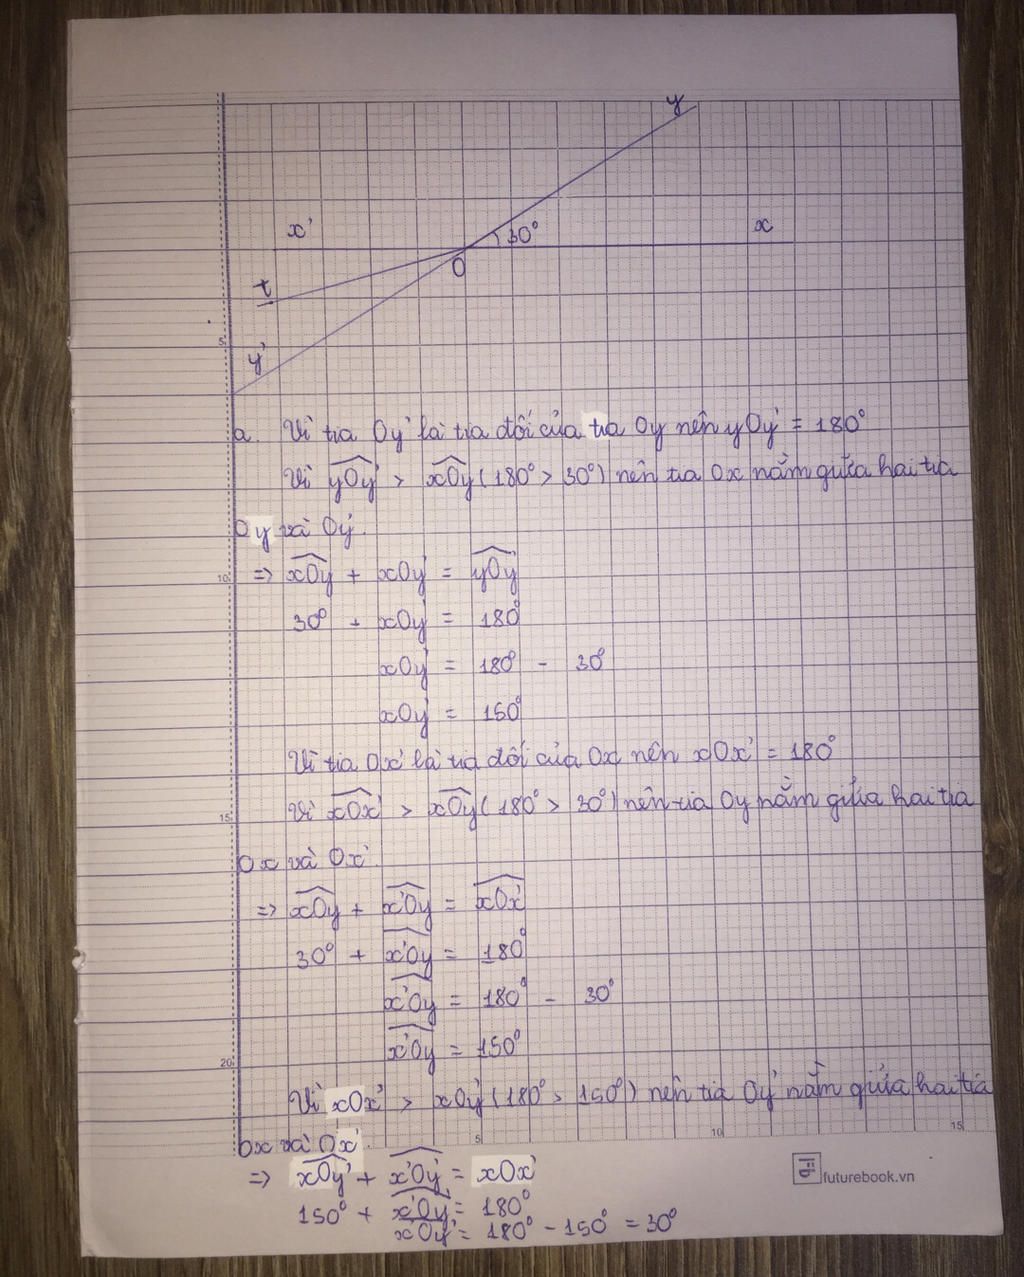 y
x'
30°
x
O
t
5
y'
a. Vì tia Oy' là tia đối của tia Oy nên yOy' = 180°
Vì yOy' > xOy (180° > 30°) nên tia Ox nằm giữa hai tia
Oy và Oy'.
10
=> xOy + xOy' = yOy'
30° + xOy' = 180°
xOy' = 180° - 30°
xOy' = 150°
Vì tia Ox' là tia đối của Ox nên xOx' = 180°
Vì xOx' > xOy (180° > 30°) nên tia Oy nằm giữa hai tia
15
Ox và Ox'.
=> xOy + x'Oy = xOx'
30° + x'Oy = 180°
x'Oy = 180° - 30°
x'Oy = 150°
20
Vì xOx' > xOy' (180° > 150°) nên tia Oy' nằm giữa hai tia
5
10
15
Ox và Ox'.
=> xOy' + x'Oy' = xOx'
futurebook.vn
150° + x'Oy' = 180°
x'Oy' = 180° - 150° = 30°